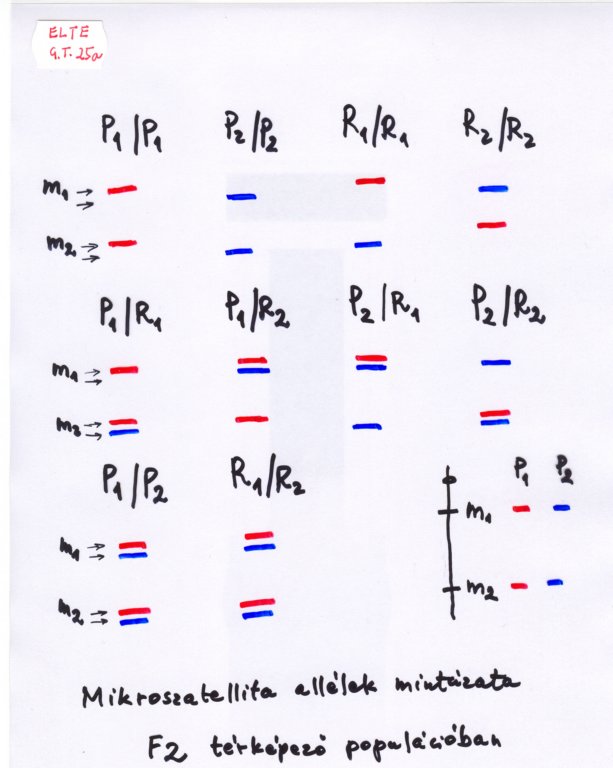 ELTE
G.T. 25a
P₁/P₁ P₂/P₂ R₁/R₁ R₂/R₂
m₁
m₂
P₁/R₁ P₁/R₂ P₂/R₁ P₂/R₂
m₁
m₂
P₁/P₂ R₁/R₂
P₁ P₂
m₁ m₁
m₂ m₂
Mikroszatellita allélek mintázata
F2 térképező populációban